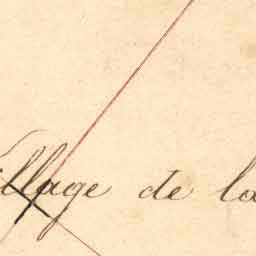 illage de la